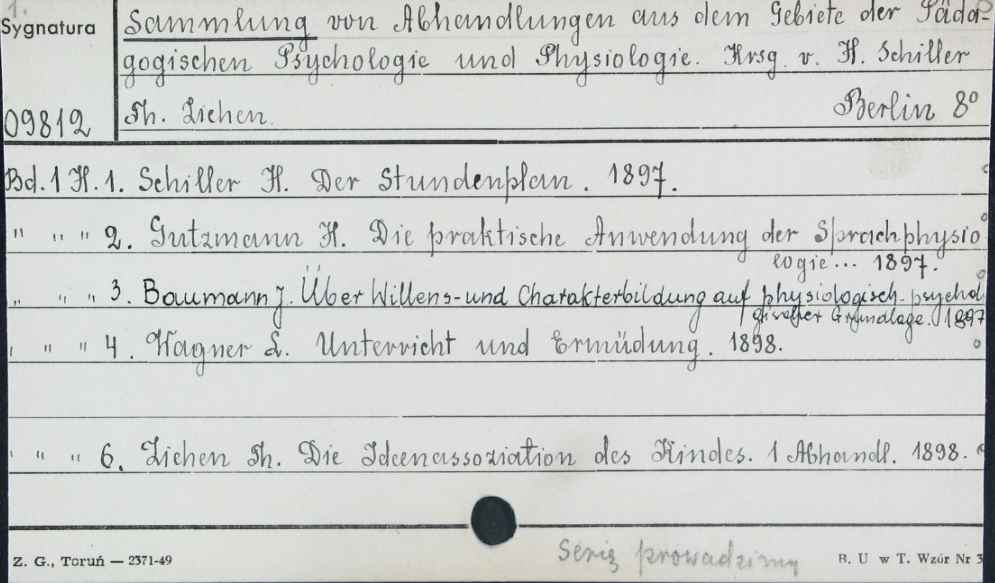 1.
Sygnatura
09812
Sammlung von Abhandlungen aus dem Gebiete der Päda-
gogischen Psychologie und Physiologie. Hrsg. v. H. Schiller
Th. Ziehen. Berlin 8°
Bd. 1 H. 1. Schiller H. Der Stundenplan. 1897.
" " " 2. Gutzmann H. Die praktische Anwendung der Sprachphysio
logie... 1897.
" " " 3. Baumann J. Über Willens- und Charakterbildung auf physiologisch-psychol
gischer Grundlage. 1897
" " " 4. Wagner L. Unterricht und Ermüdung. 1898.
" " " 6. Ziehen Th. Die Ideenassoziation des Kindes. 1 Abhandl. 1898.
Serię prowadzimy
Z. G., Toruń — 2371-49
B. U w T. Wzór Nr 3